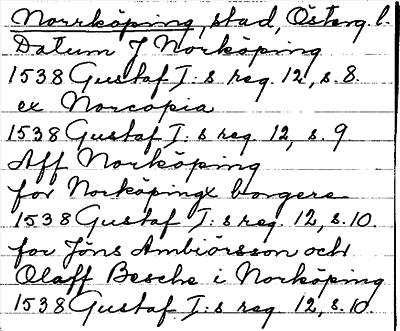 Norrköping, stad, Österg. l.
Datum J Norköping
1538 Gustaf I:s reg. 12, s. 8.
ex Norcopia
1538 Gustaf I:s reg. 12, s. 9
Aff Norköping
for Norköpingx borgere
1538 Gustaf I:s reg. 12, s. 10.
for Jöns Ambiörsson och
Olaff Besche i Norköping
1538 Gustaf I:s reg. 12, s. 10.